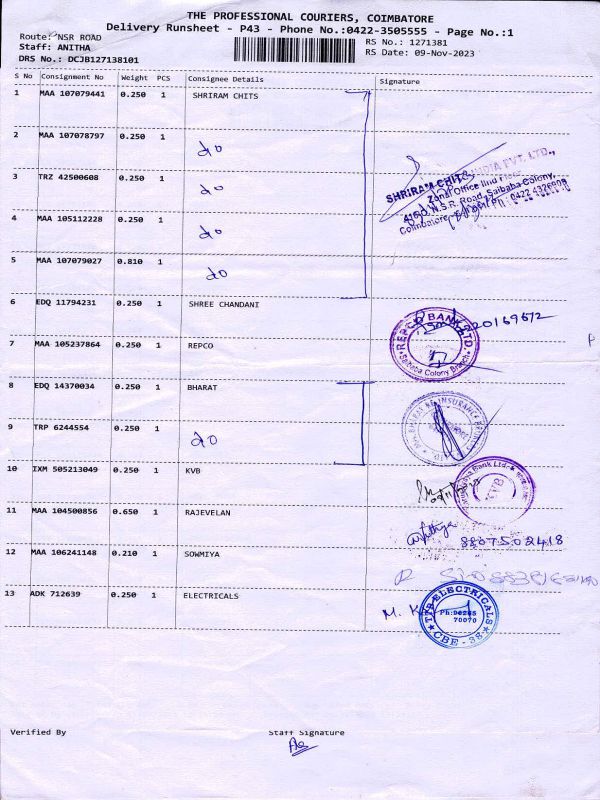 THE PROFESSIONAL COURIERS, COIMBATORE
Delivery Runsheet - P43 - Phone No.:0422-3505555 - Page No.:1
Route: NSR ROAD
RS No.: 1271381
Staff: ANITHA
RS Date: 09-Nov-2023
DRS No.: DCJB127138101
S No Consignment No Weight PCS Consignee Details Signature
1 MAA 107079441 0.250 1 SHRIRAM CHITS
2 MAA 107078797 0.250 1 do
3 TRZ 42500608 0.250 1 do
SHRIRAM CHITS INDIA PVT. LTD.,
Zonal Office IInd Floor
N.S.R. Road, Saibaba Colony,
Coimbatore
4 MAA 105112228 0.250 1 do
5 MAA 107079027 0.810 1 do
6 EDQ 11794231 0.250 1 SHREE CHANDANI
7 MAA 105237864 0.250 1 REPCO
REPCO BANK LTD
Saibaba Colony Branch
8 EDQ 14370034 0.250 1 BHARAT
9 TRP 6244554 0.250 1 do
10 IXM 505213049 0.250 1 KVB
11 MAA 104500856 0.650 1 RAJEVELAN
8807502418
12 MAA 106241148 0.210 1 SOWMIYA
13 ADK 712639 0.250 1 ELECTRICALS
M. K
TTB ELECTRICALS
Ph:96265
70070
CBE - 38
Verified By Staff Signature